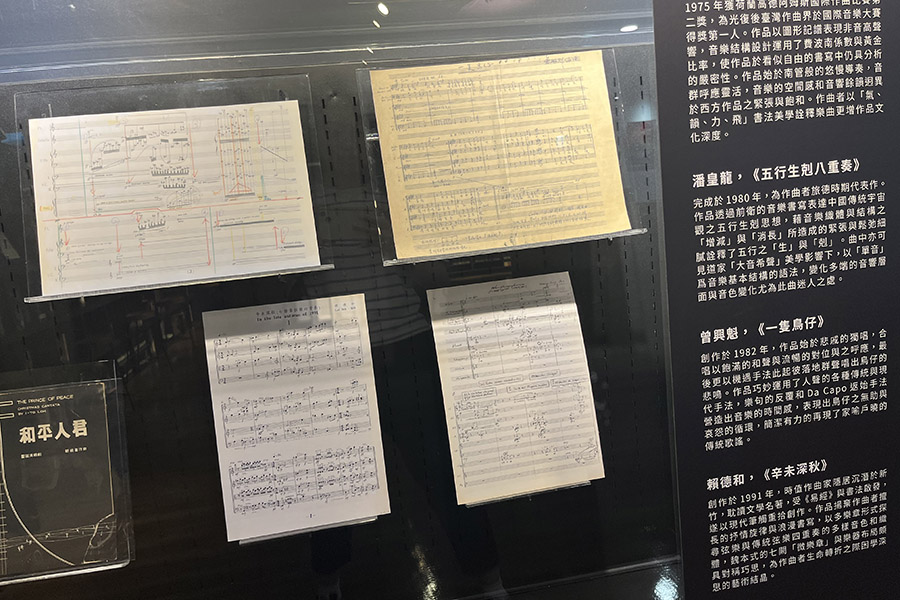 THE PRINCE OF PEACE
CHRISTMAS CANTATA
和平人君
In the late autumn of 1991
1975 年獲荷蘭高德阿姆斯國際作曲比賽第
二獎,為光復後臺灣作曲界於國際音樂大賽
得獎第一人。作品以圖形記譜表現非音高聲
響,音樂結構設計運用了費波南係數與黃金
比率,使作品於看似自由的書寫中仍具分析
的嚴密性。作品始於南管般的悠慢導奏,音
群呼應靈活,音樂的空間感和音響餘韻迥異
於西方作品之緊張與飽和。作曲者以「氣、
韻、力、飛」書法美學詮釋樂曲更增作品文
化深度。
潘皇龍,《五行生剋八重奏》
完成於 1980 年,為作曲者旅德時期代表作。
作品透過前衛的音樂書寫表達中國傳統宇宙
觀之五行生剋思想,藉音樂織體與結構之
「增減」與「消長」所造成的緊張與鬆弛細
膩詮釋了五行之「生」與「剋」。曲中亦可
見道家「大音希聲」美學影響下,以「單音」
爲音樂基本結構的語法,變化多端的音響層
面與音色變化尤為此曲迷人之處。
曾興魁,《一隻鳥仔》
創作於 1982 年,作品始於悲戚的獨唱,合
唱以飽滿的和聲與流暢的對位與之呼應,最
後更以機遇手法此起彼落地群聲唱出鳥仔的
悲鳴。作品巧妙運用了人聲的各種傳統與現
代手法,樂句的反覆和 Da Capo 返始手法
營造出音樂的時間感,表現出鳥仔之無助與
哀怨的循環,簡潔有力的再現了家喻戶曉的
傳統歌謠。
賴德和,《辛未深秋》
創作於 1991 年,時值作曲家隱居沉潛於新
竹,耽讀文學名著,受《易經》與書法啟發,
遂以現代筆觸重拾創作。作品揚棄作曲者擅
長的抒情旋律與浪漫書寫,以多樂章形式探
尋弦樂與傳統弦樂四重奏的多樣音色和織
體,魏本式的七闋「微樂章」與樂器布局頗
具對稱巧思,為作曲者生命轉折之際困學深
思的藝術結晶。